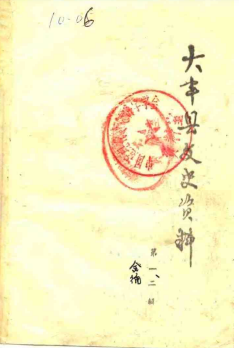 10-06
大丰县文史资料
第一、二辑
合编